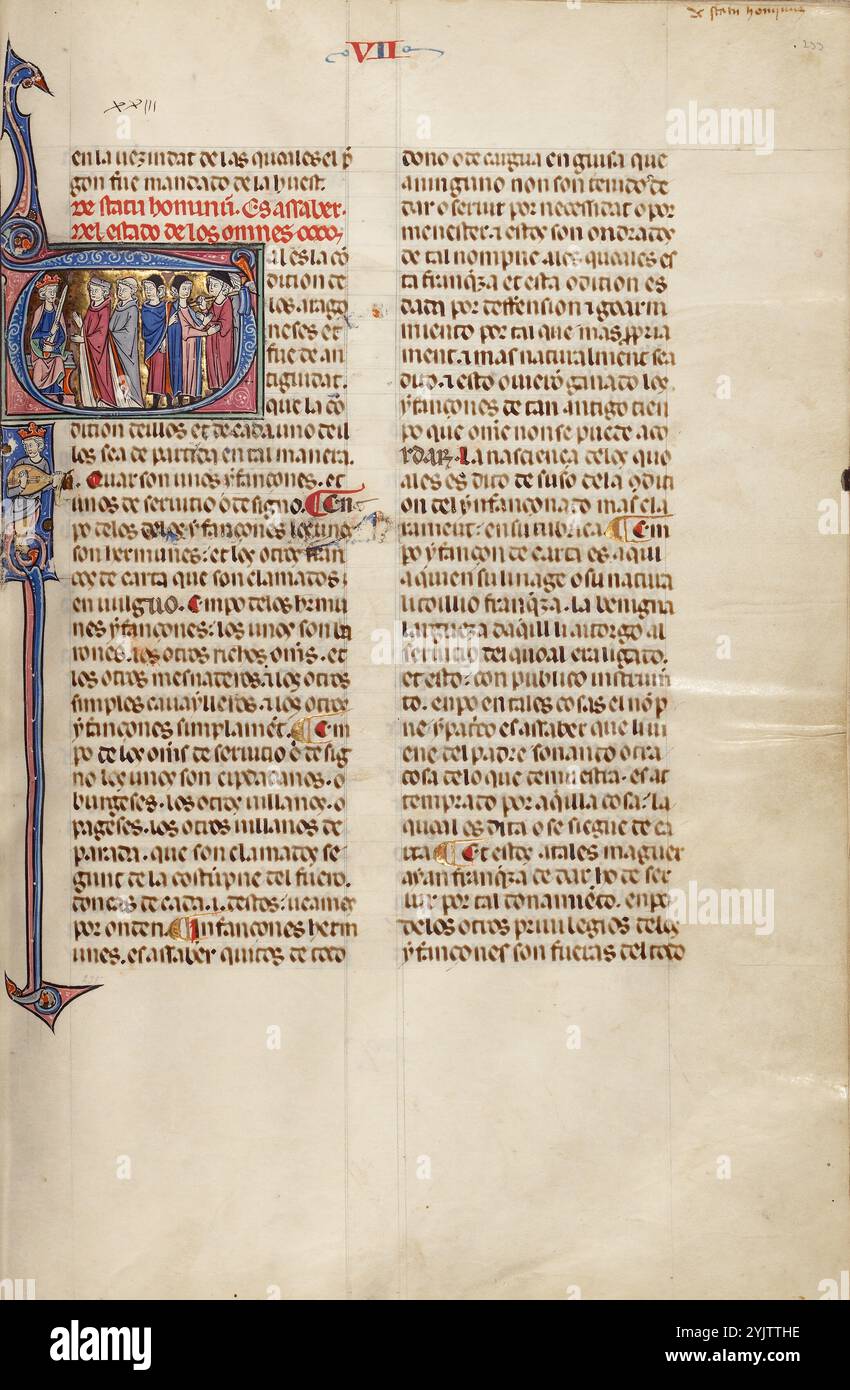 de statu hominum
VII
233
xxiii
en la uezindat de las quales el p̃
gon fue mandado de la huest.
De statu hominũ. Es assaber.
Del estado de los omnes
Tal es la cõ
dition de
los arago
neses et
fue de an
tiguidat.
que la cõ
dition dellos et de cada uno dell
los sea de partida en tal manera.
Quar son unos yfançones. et
unos de seruitio o de signo. En
po delos yfançones los unos
son hermunes. et los otros fran
cos de carta que son clamados
en uulguo. Empo delos hermu
nes yfançones. los unos son ba
rones. los otros richos oms̃. et
los otros mesnaderos. a los otros
simples cauaylleros. a los otros
yfançones simplament. Em
po de los oms̃ de seruitio o de sig
no los unos son cipdadanos. o
burgeses. los otros uillanos. o
pageses. los otros uillanos de
parada. que son clamados se
gunt de la costũpne del fuero.
doncas de cada .i. destos. ueamos
por orden. Infançones herm
unes. es assaber quitos de todo
dono o de cargua en guisa que
a ninguno non son tenidos de
dar o seruir por necessidat o por
menester. a estos son ondrados
de tal nompne. ales quales es
ta franq̃za et esta 9dition es
dada por deffension 1 goarni
miento por tal que mas ppria
ment. a mas naturalment sea
dito. a esto ouierõ ganado los
yfançones de tan antigo tien
po que omẽ non se puede aco
rdar. La nascienca delos quo
ales es dito de suso de la 9diti
on del ynfançonado mas cla
rament. en su rubrica. Em
po yfançon de carta es aqui
a quien su linage o su natura
li to illio franq̃za. la benigna
largueza daq̃ll li atorgo al
seruicio del quoal era ligado.
et esto. con publico instrum̃
to. enpo en tales cosas el nõ p
ne yparço es assaber que li ui
ene del padre sonando otra
cosa delo que demuestra. es at
temprado por aq̃lla cosa. la
quoal es dita o se siegue de ca
rta. Et estos atales maguer
ayan franq̃za de dar ho de ser
uir por tal donamẽto. enpo
de los otros priuilegios delos
yfançones son fueras del todo
alamy
Image ID: 2YJTTHE
www.alamy.com